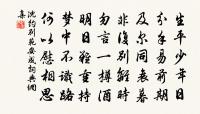 生平少年日
分手易前期
及尔同衰暮
非復別離時
勿言一樽酒
明日難重持
夢中不識路
何以慰相思
沈約別範安成詞典網
集